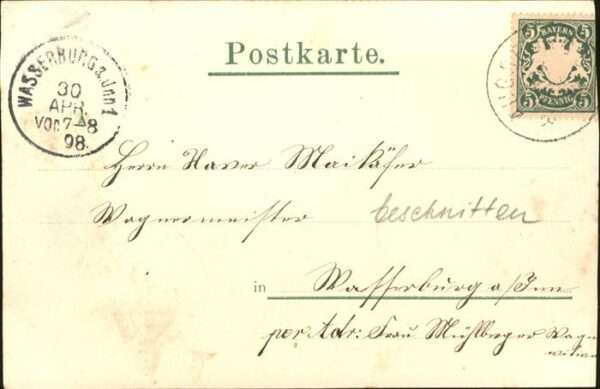 Postkarte.
WASSERBURG a. Inn 1
30
APR.
VOR 7-8
98.
5 BAYERN 5
5 PFENNIG 5
Herrn Xaver Maikäfer
Wagnermeister
beschnitten
in Wasserburg a/Inn
per Adr: Frau Mühlberger Wagner